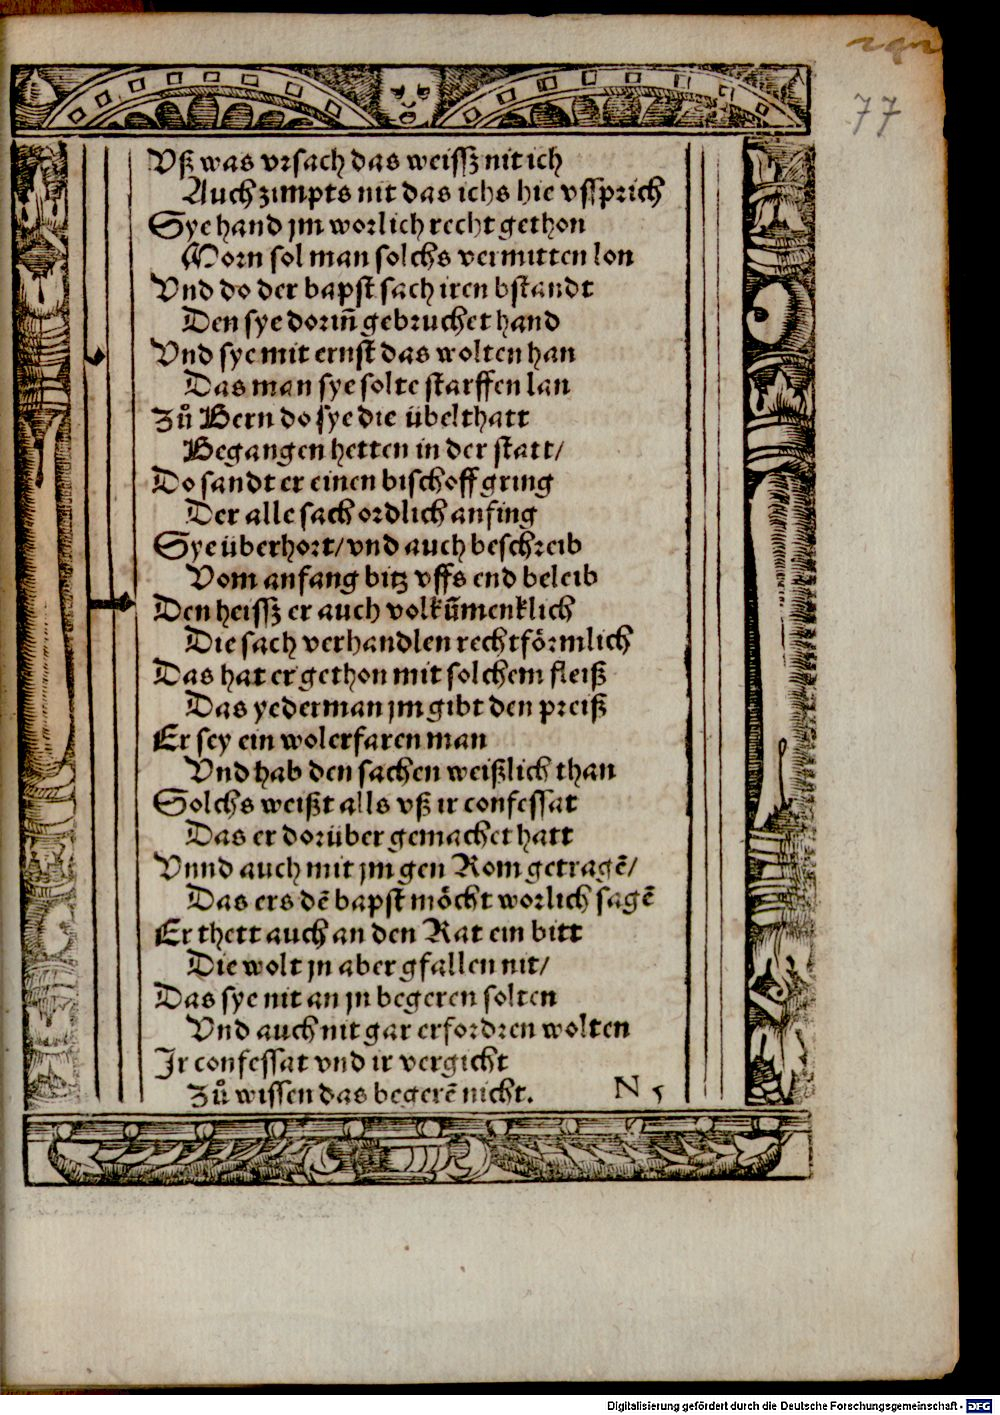 77
Vß was vrsach das weissz nit ich
Auch zimpts nit das ichs hie vssprich
Sye hand jm worlich recht gethon
Morn sol man solchs vermitten lon
Vnd do der bapst sach iren bstandt
Den sye dorin̄ gebruchet hand
Vnd sye mit ernst das wolten han
Das man sye solte starffen lan
Zů Bern do sye die übelthatt
Begangen hetten in der statt/
Do sandt er einen bischoff gring
Der alle sach ordlich anfing
Sye überhort/ vnd auch beschreib
Vom anfang bitz vffs end beleib
Den heissz er auch volkūmenklich
Die sach verhandlen rechtförmlich
Das hat er gethon mit solchem fleiß
Das yederman jm gibt den preiß
Er sey ein wolerfaren man
Vnd hab den sachen weißlich than
Solchs weißt alls vß ir confessat
Das er dorüber gemachet hatt
Vnnd auch mit jm gen Rom getragē/
Das ers dē bapst möcht worlich sagē
Er thett auch an den Rat ein bitt
Die wolt jn aber gfallen nit/
Das sye nit an jn begeren solten
Vnd auch nit gar erfordren wolten
Ir confessat vnd ir vergicht
Zů wissen das begerē nicht.
N 5
Digitalisierung gefördert durch die Deutsche Forschungsgemeinschaft - DFG